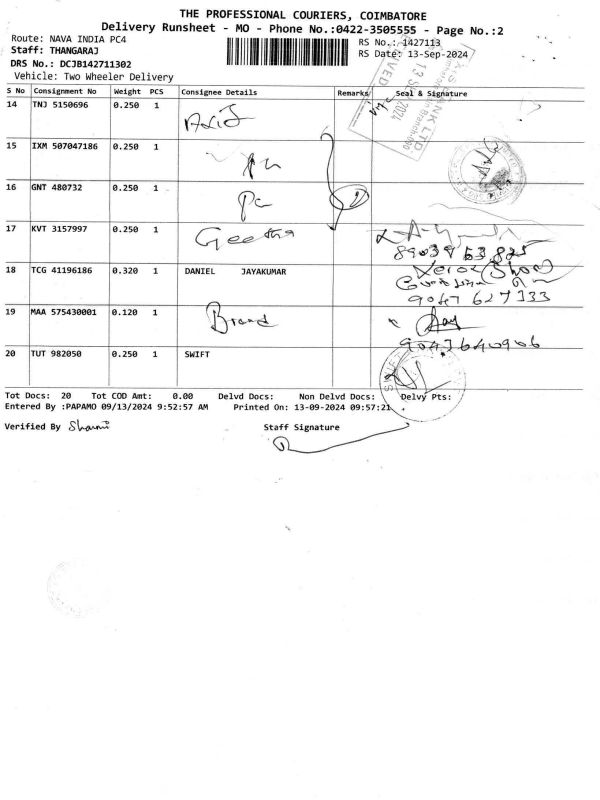 THE PROFESSIONAL COURIERS, COIMBATORE
Delivery Runsheet - MO - Phone No.:0422-3505555 - Page No.:2
Route: NAVA INDIA PC4 RS No.: 1427113
Staff: THANGARAJ RS Date: 13-Sep-2024
DRS No.: DCJB142711302
Vehicle: Two Wheeler Delivery
S No Consignment No Weight PCS Consignee Details Remarks Seal & Signature
14 TNJ 5150696 0.250 1 Axis
BANK LTD
13 2024
15 IXM 507047186 0.250 1
16 GNT 480732 0.250 1
17 KVT 3157997 0.250 1 Geetha
18 TCG 41196186 0.320 1 DANIEL JAYAKUMAR Xerox (Shop)
9047 627333
19 MAA 575430001 0.120 1 Brand
9043640906
20 TUT 982050 0.250 1 SWIFT
Tot Docs: 20 Tot COD Amt: 0.00 Delvd Docs: Non Delvd Docs: Delvy Pts:
Entered By :PAPAMO 09/13/2024 9:52:57 AM Printed On: 13-09-2024 09:57:21
Verified By Sharmi Staff Signature